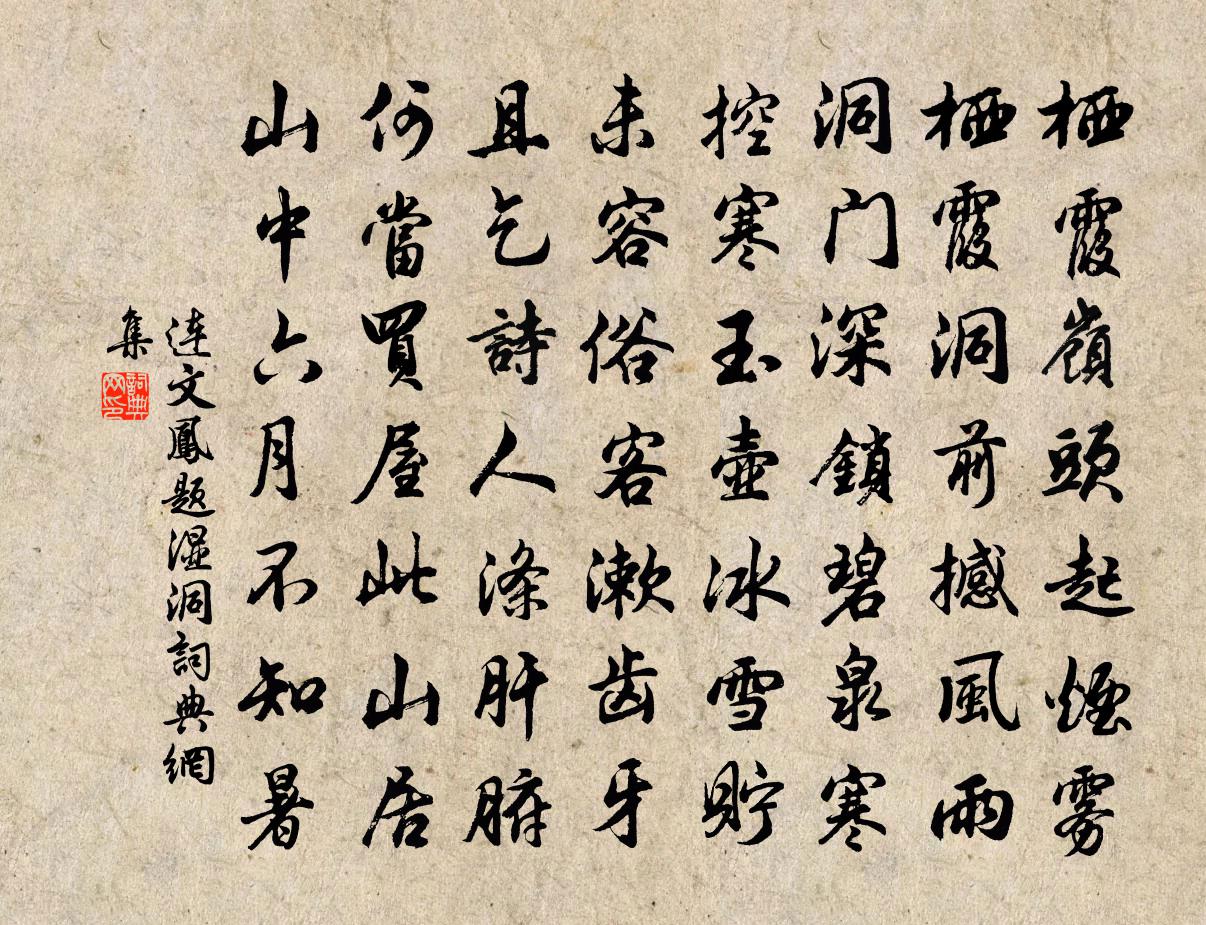 栖霞嶺頭起煙雾
栖霞洞前撼風雨
洞门深鎖碧泉寒
控寒玉壺冰雪貯
未容俗客漱齿牙
且乞詩人滌肝腑
何當買屋此山居
山中六月不知暑
连文鳳题湿洞詞典網
集
詞典网印